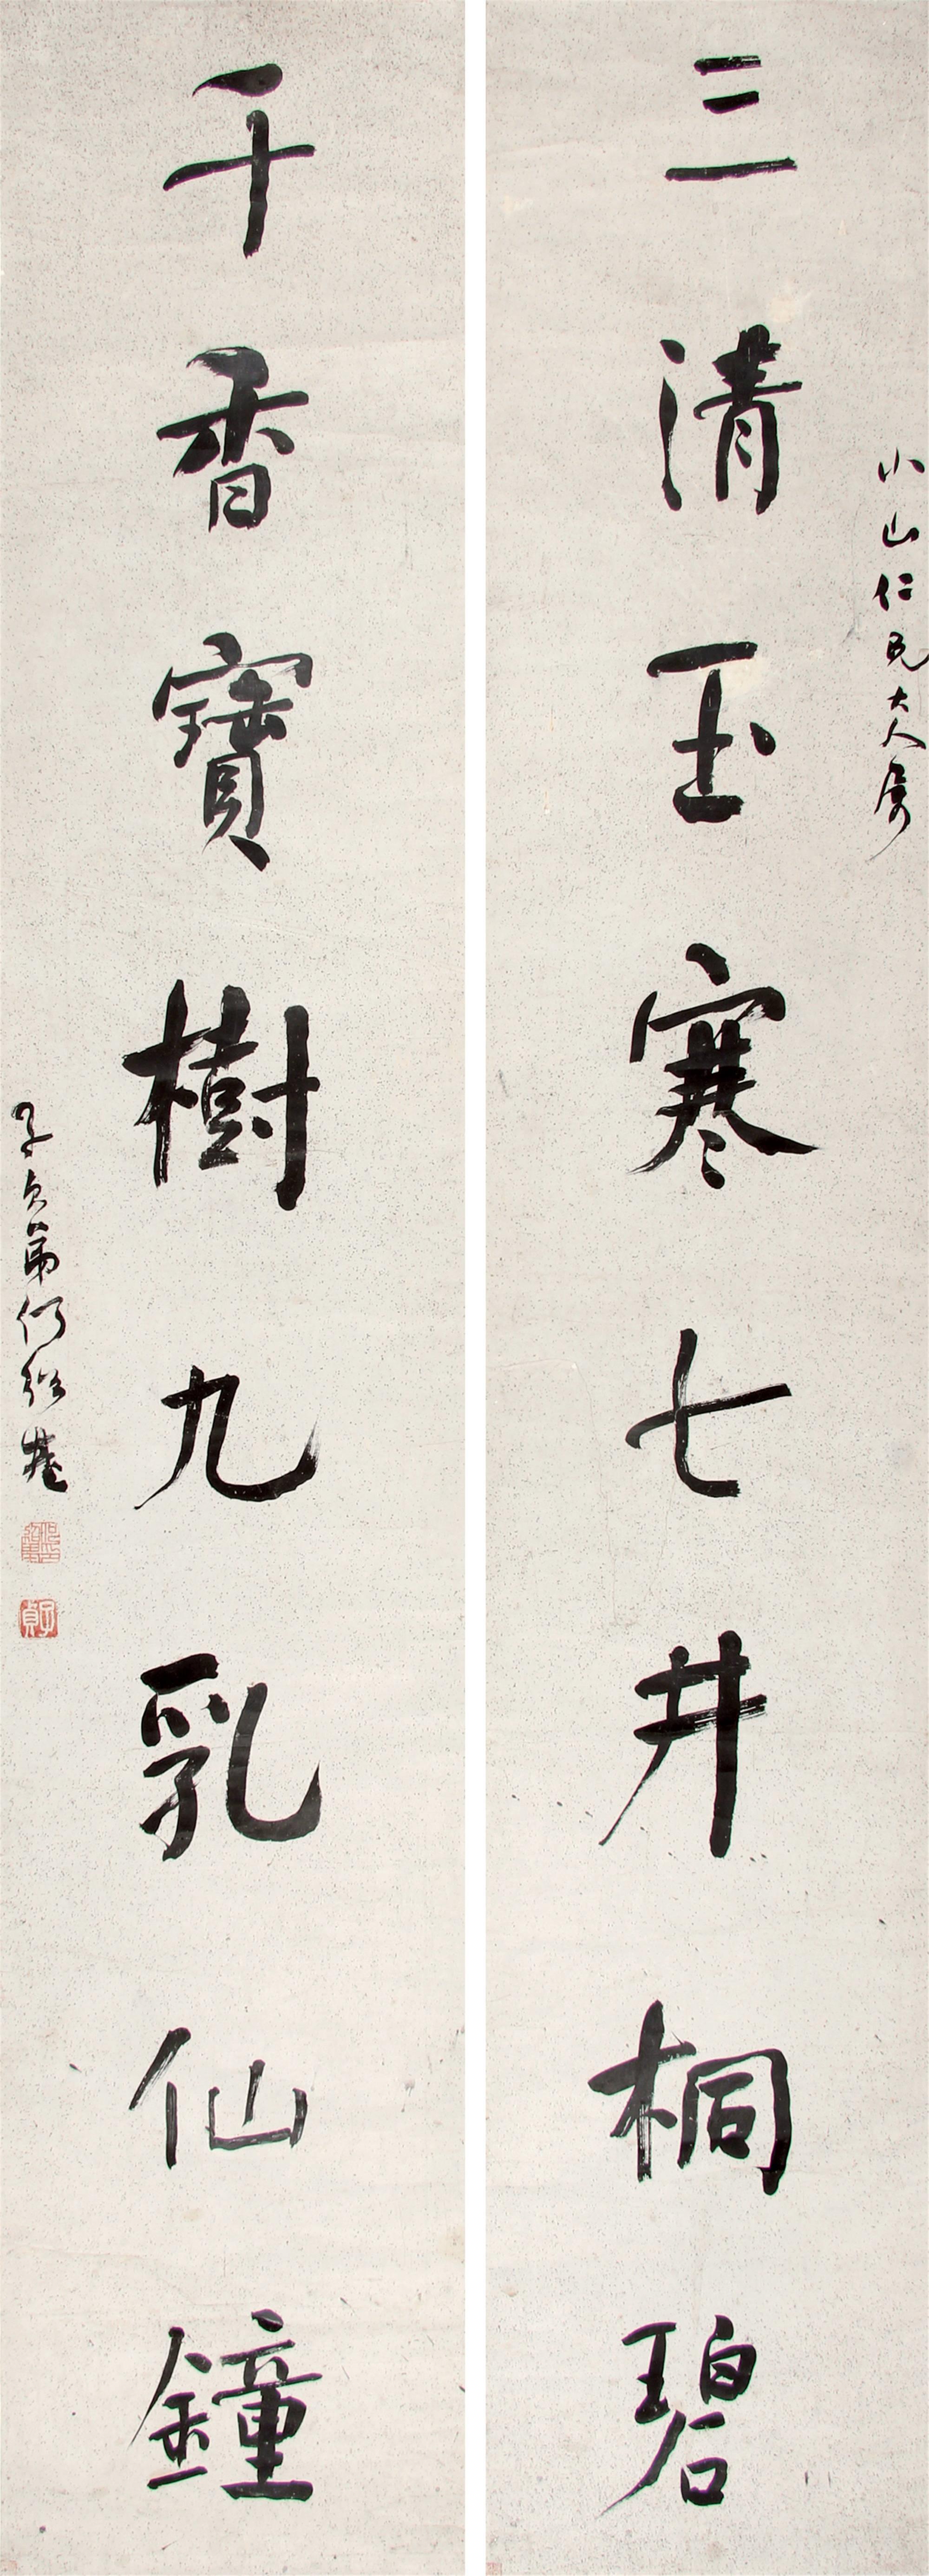 小山仁兄大人屬
三清玉寒七井桐碧
千香寶樹九乳仙鐘
子貞弟何紹基
子貞